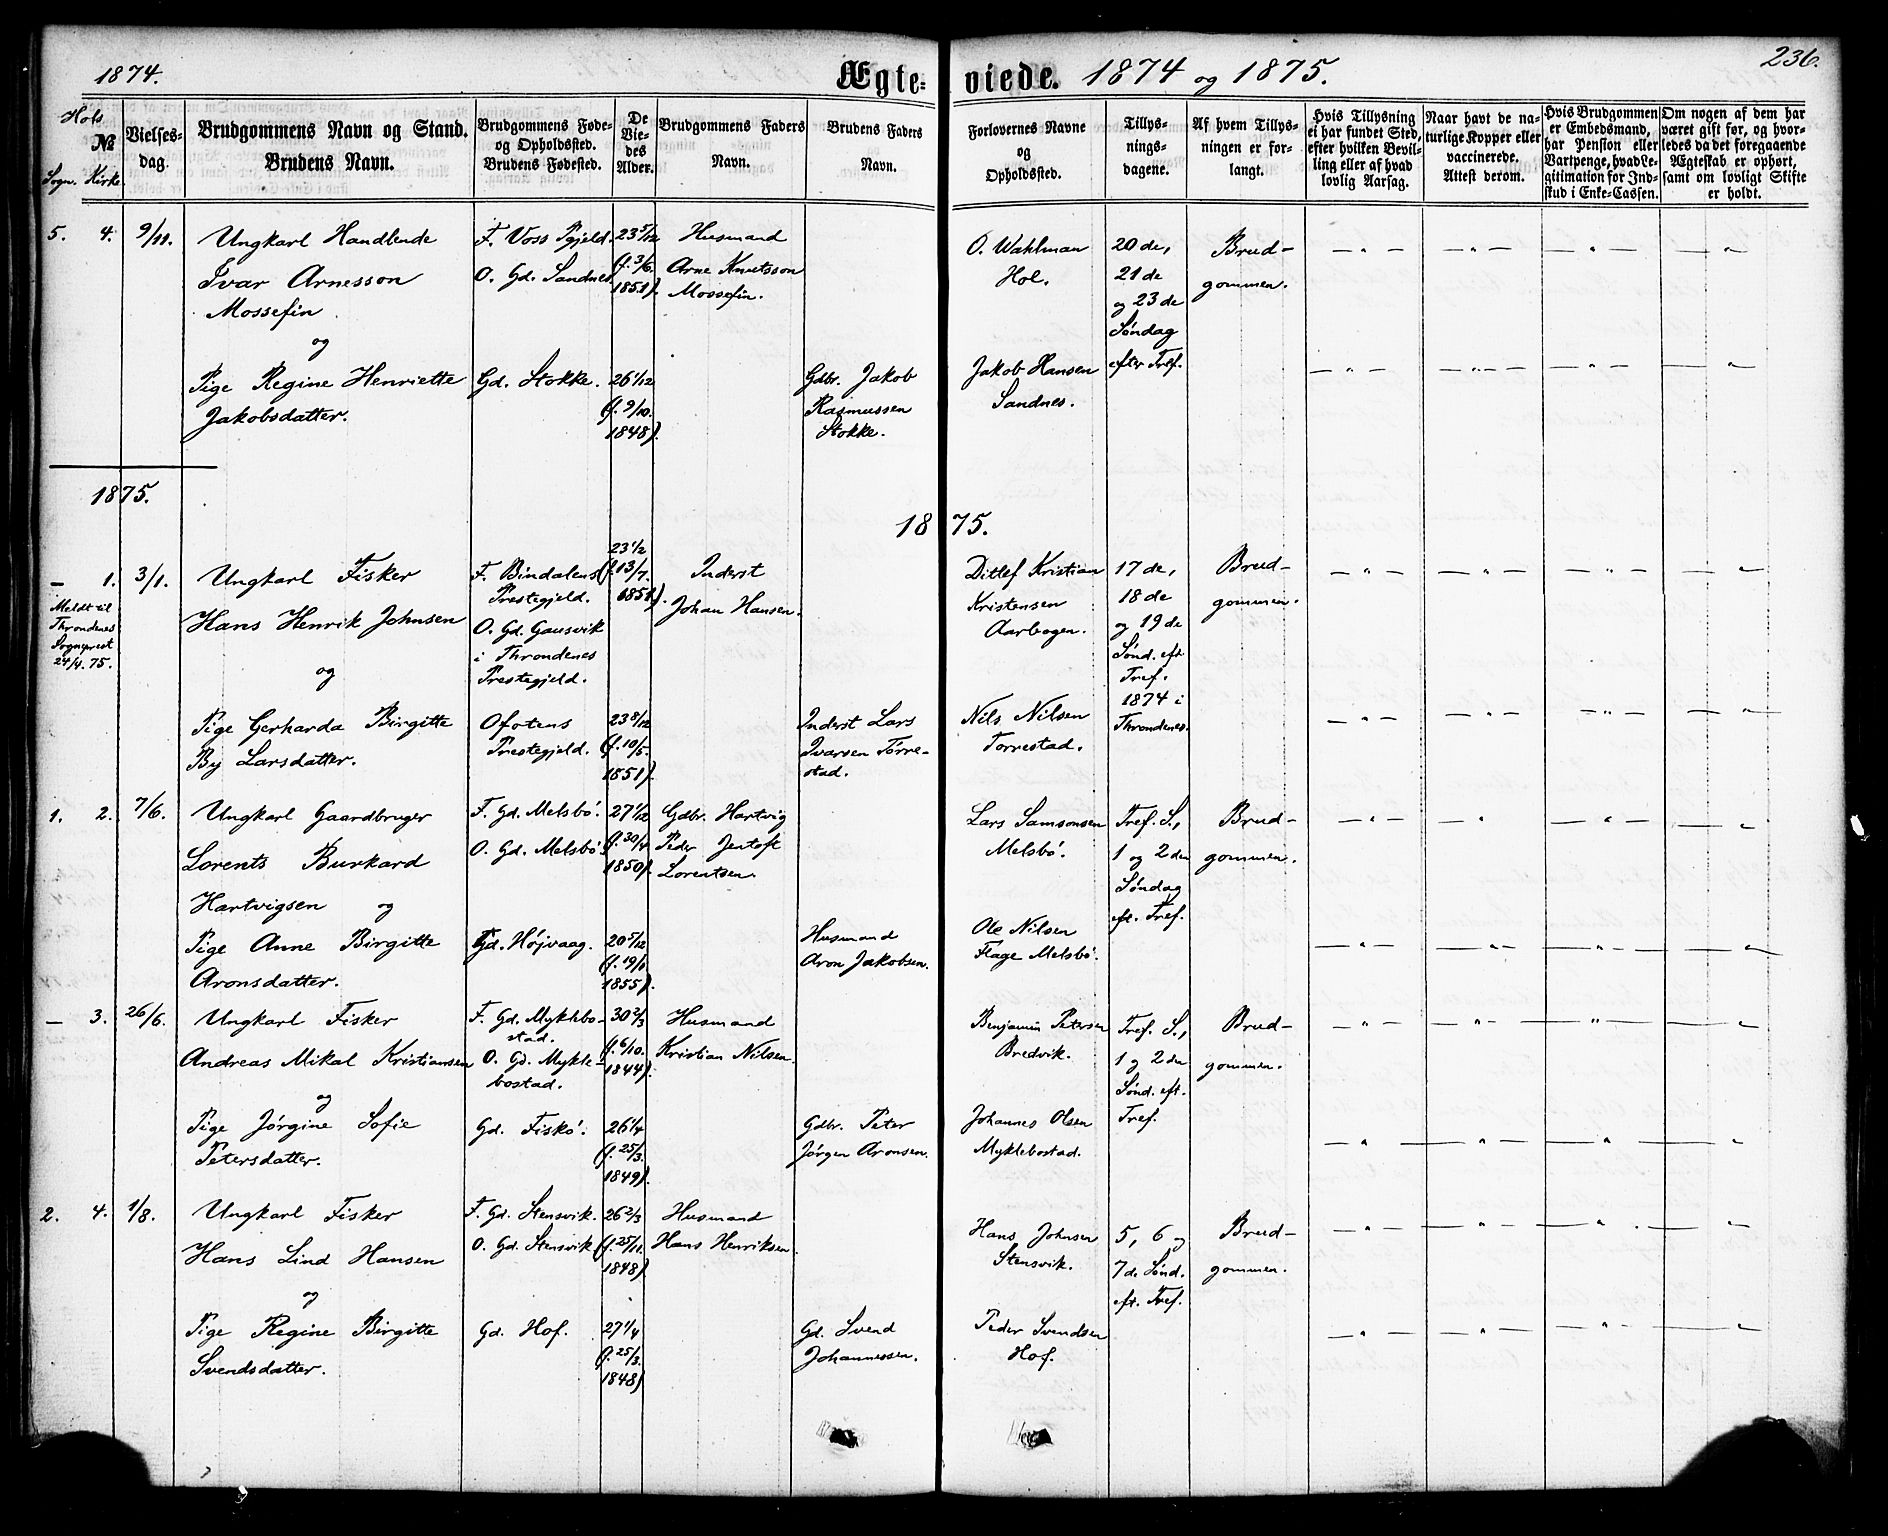 1874.
Ægte-
viede. 1874 og 1875.
236.
Hols
№
Sogn. Kirke.
Vielses-
dag.
Brudgommens Navn og Stand.
Brudens Navn.
Brudgommens Føde-
og Opholdssted.
Brudens Fødested.
De
Vie-
des
Alder.
Brudgommens Faders
Navn.
Brudens Faders
Navn.
Forlovernes Navne
og
Opholdssted.
Tillys-
nings-
dagene.
Af hvem Tillys-
ningen er for-
langt.
Hvis Tillysning
ei har fundet Sted,
efter hvilken Bevil-
ling eller af hvad
lovlig Aarsag.
Naar havt de na-
turlige Kopper eller
vaccinerede.
Attest derom.
Hvis Brudgommen
er Embedsmand,
har Pension eller
Vartpenge, hvad Le-
gitimation for Ind-
skud i Enke-Cassen.
Om nogen af dem har
været gift før, og hvor-
ledes da det foregaaende
Ægteskab er ophørt,
samt om lovligt Skifte
er holdt.
5. 4. 9/11.
Ungkarl Handlende
Ivar Arnesson
Mossefin
og
Pige Regine Henriette
Jakobsdatter.
F. Voss Pgjeld.
O. Gd. Sandnes.
Gd. Stokke.
23 5/12
(f. 3/6.
1851).
26 1/12
(f. 9/10.
1848).
Husmand
Arne Knutsson
Mossefin.
Gdbr. Jakob
Rasmussen
Stokke.
O. Wahlman
Hol.
Jakob Hansen
Sandnes.
20de,
21de
og 23de
Søndag
efter Tref.
Brud-
gommen.
1875.
1875.
— 1. 3/1.
Meldt til
Throndenes
Sogneprest
24/4. 75.
Ungkarl Fisker
Hans Henrik Johnsen
og
Pige Gerharda Birgitte
By Larsdatter.
F. Bindalens
Prestegjeld.
O. Gd. Gausvik
i Throndenes
Prestegjeld.
Ofotens
Prestegjeld.
23 1/2
(f. 13/7.
1851).
23 8/12
(f. 10/5.
1851).
Inderst
Johan Hansen.
Inderst Lars
Ivarsen Tørre-
stad.
Ditlef Kristian
Kristensen
Aarbogen.
Nils Nilsen
Torrestad.
17de,
18de
og 19de
Sønd. eft
Tref.
1874 i
Throndenes.
Brud-
gommen.
1. 2. 7/6.
Ungkarl Gaardbruger
Lorents Burkard
Hartvigsen og
Pige Anne Birgitte
Aronsdatter.
F. Gd. Melsbö.
O. Gd. Melsbö.
Gd. Höjvaag.
27 1/12
(f. 30/4
1850).
20 5/12
(f. 19/1
1855).
Gdbr. Hartvig
Peder Jentoft
Lorentsen.
Husmand
Aron Jakobsen.
Lars Samsonsen
Melsbö.
Ole Nilsen
Flage Melsbö.
Tref. S.,
1 og 2den
Søndag
eft. Tref.
Brud-
gommen.
— 3. 26/6.
Ungkarl Fisker
Andreas Mikal Kristiansen
og
Pige Jørgine Sofie
Petersdatter.
F. Gd. Myklebo-
stad.
O. Gd. Mykle-
bostad.
Gd. Fiskö.
30 2/3
(f. 6/10.
1844).
26 1/4
(f. 25/3.
1849).
Husmand
Kristian Nilsen.
Gdbr. Peter
Jørgen Aronsen.
Benjamin Petersen
Bredvik.
Johannes Olsen
Myklebostad.
Tref. S.,
1 og 2den
Sønd. eft.
Tref.
Brud-
gommen.
2. 4. 1/8.
Ungkarl Fisker
Hans Lind Hansen
og
Pige Regine Birgitte
Svendsdatter.
F. Gd. Stensvik.
O. Gd. Stensvik
Gd. Hof.
26 2/3
(f. 25/11.
1848)
27 1/4
(f. 25/3.
1848)
Husmand
Hans Henriksen.
Gd. Svend
Johannessen.
Hans Johnsen
Stensvik.
Peder Svendsen
Hof.
5, 6 og
7de Sønd.
eft. Tref.
Brud-
gommen.